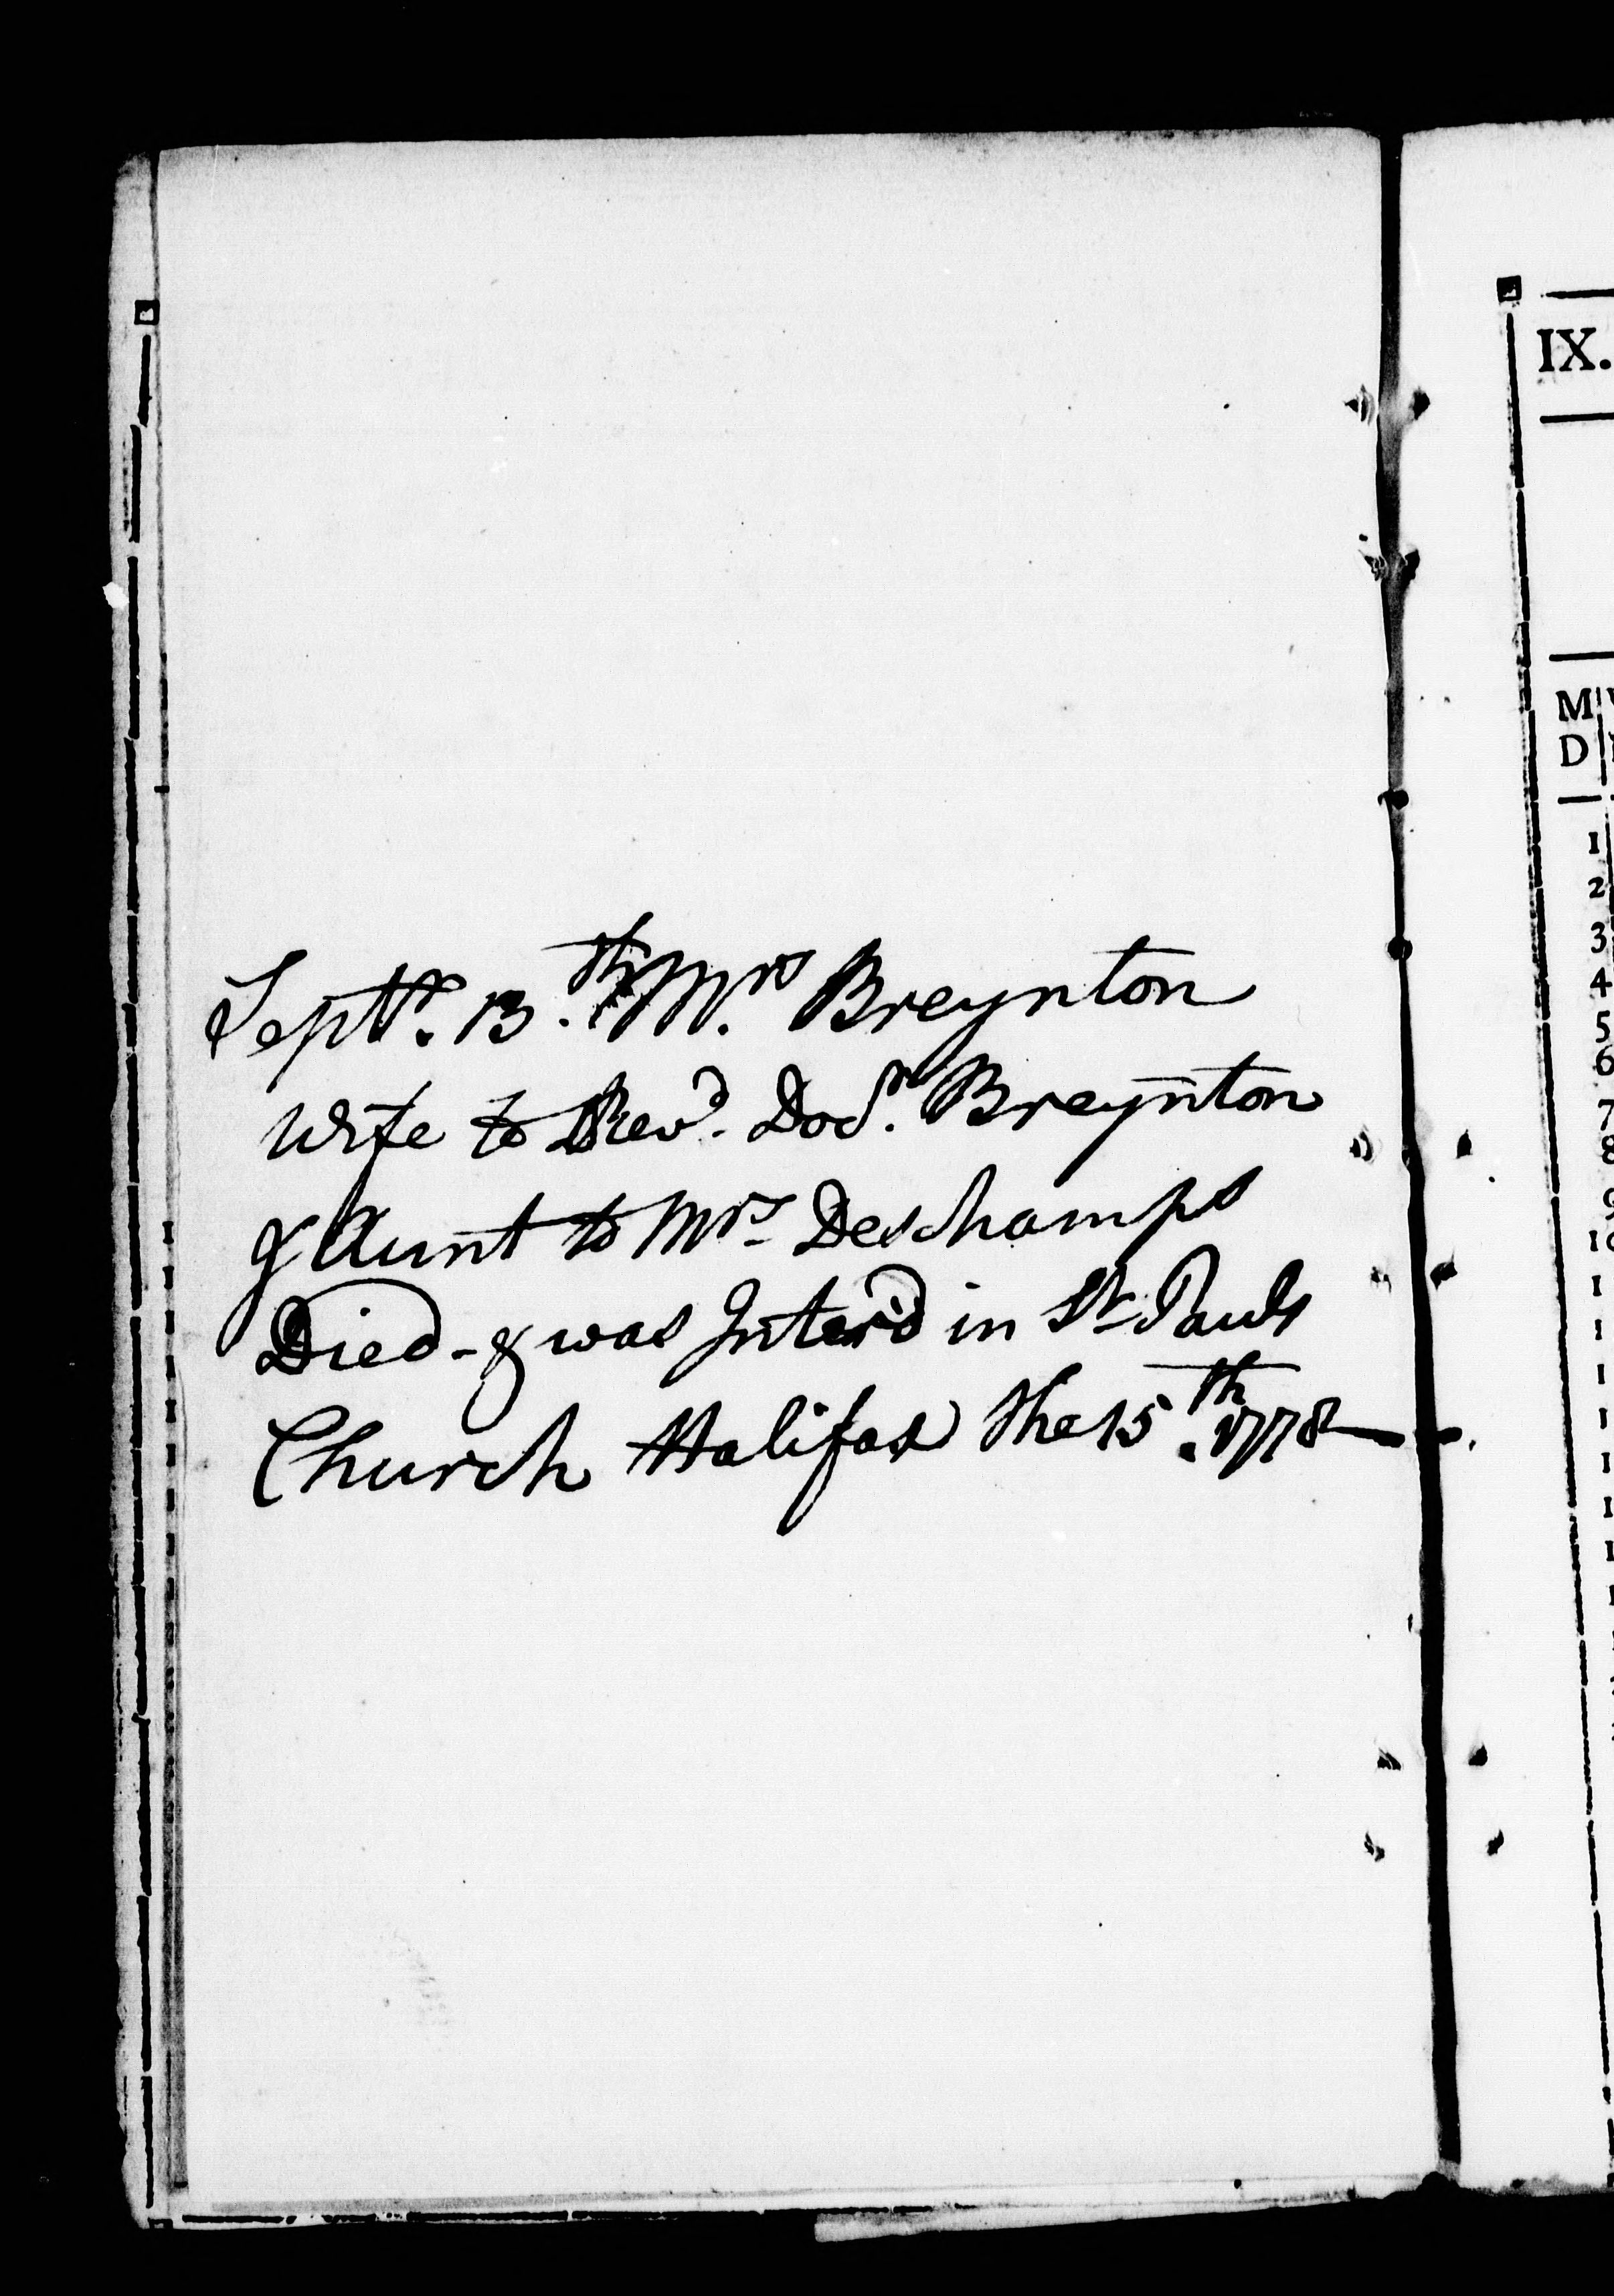 Septr. 13.th Mrs. Breynton
Wife to Revd. Docr. Breynton
& Aunt to Mrs Deschamps
Died - & was Inter'd in St Pauls
Church Halifax the 15.th 1778
IX.
M
D
1
2
3
4
5
6
7
8
9